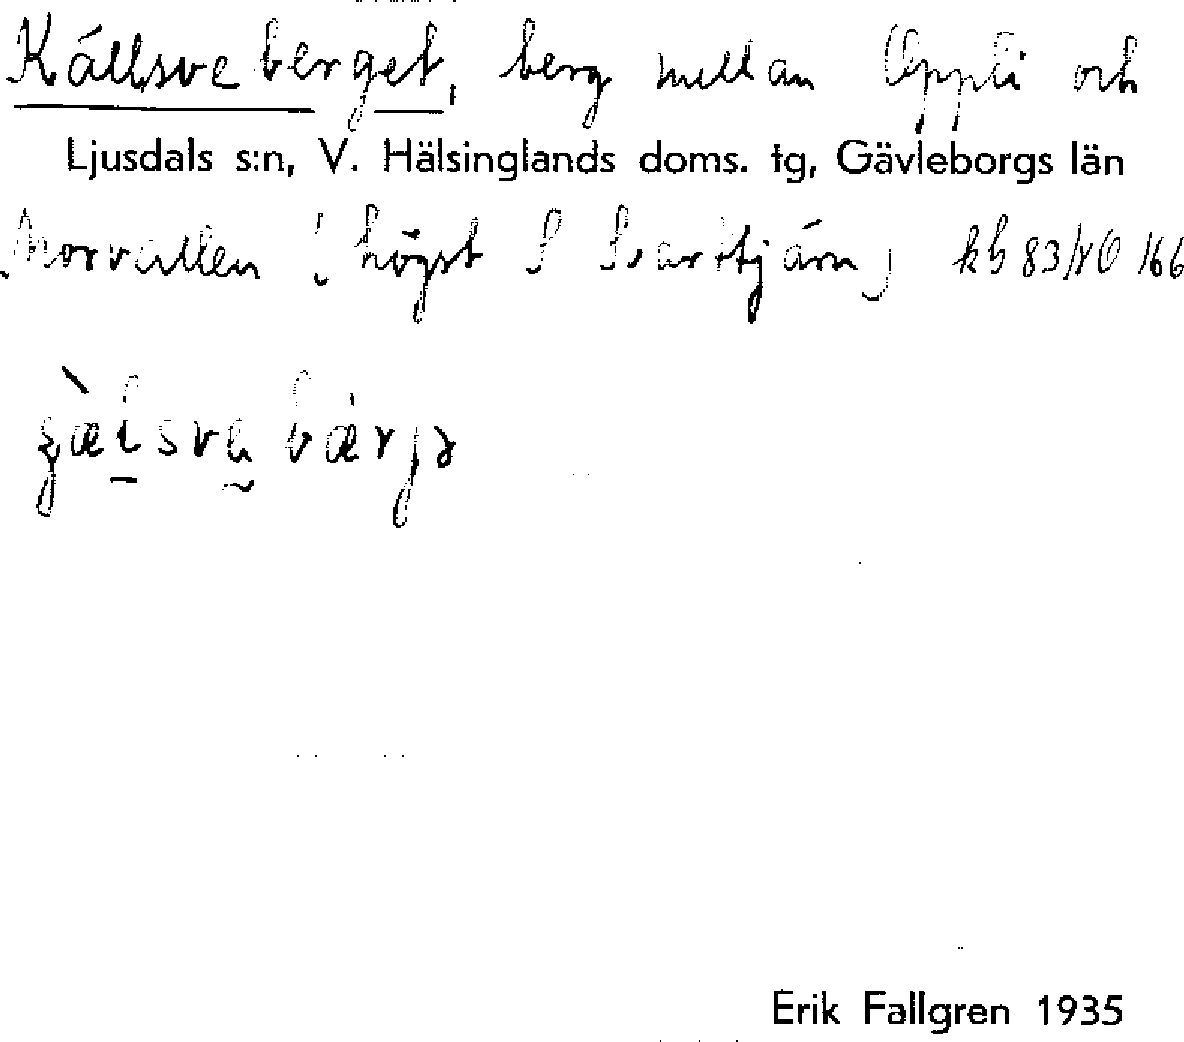 Källsveberget, berg mellan Uppli och
Ljusdals s:n, V. Hälsinglands doms. tg, Gävleborgs län
Morvallen (högst S Svarttjärn) kb 83/NO 166
Erik Fallgren 1935